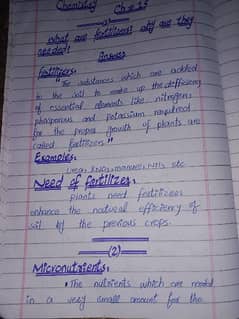 Chemistry Ch#15
what are fertilizers why are they
needed?
Answer
Fertilizers:
"The substances which are added
to the soil to make up the deficiency
of essential elements like nitrogen,
phosphorous and potassium required
for the proper growth of plants are
called fertilizers"
Examples:
urea, manures, etc
Need of fertilizer:
Plants need fertilizer
enhance the natural efficiency of
soil by the previous crops.
(2)
Micronutrients:
The nutrients which are needed
in a very small amount for the